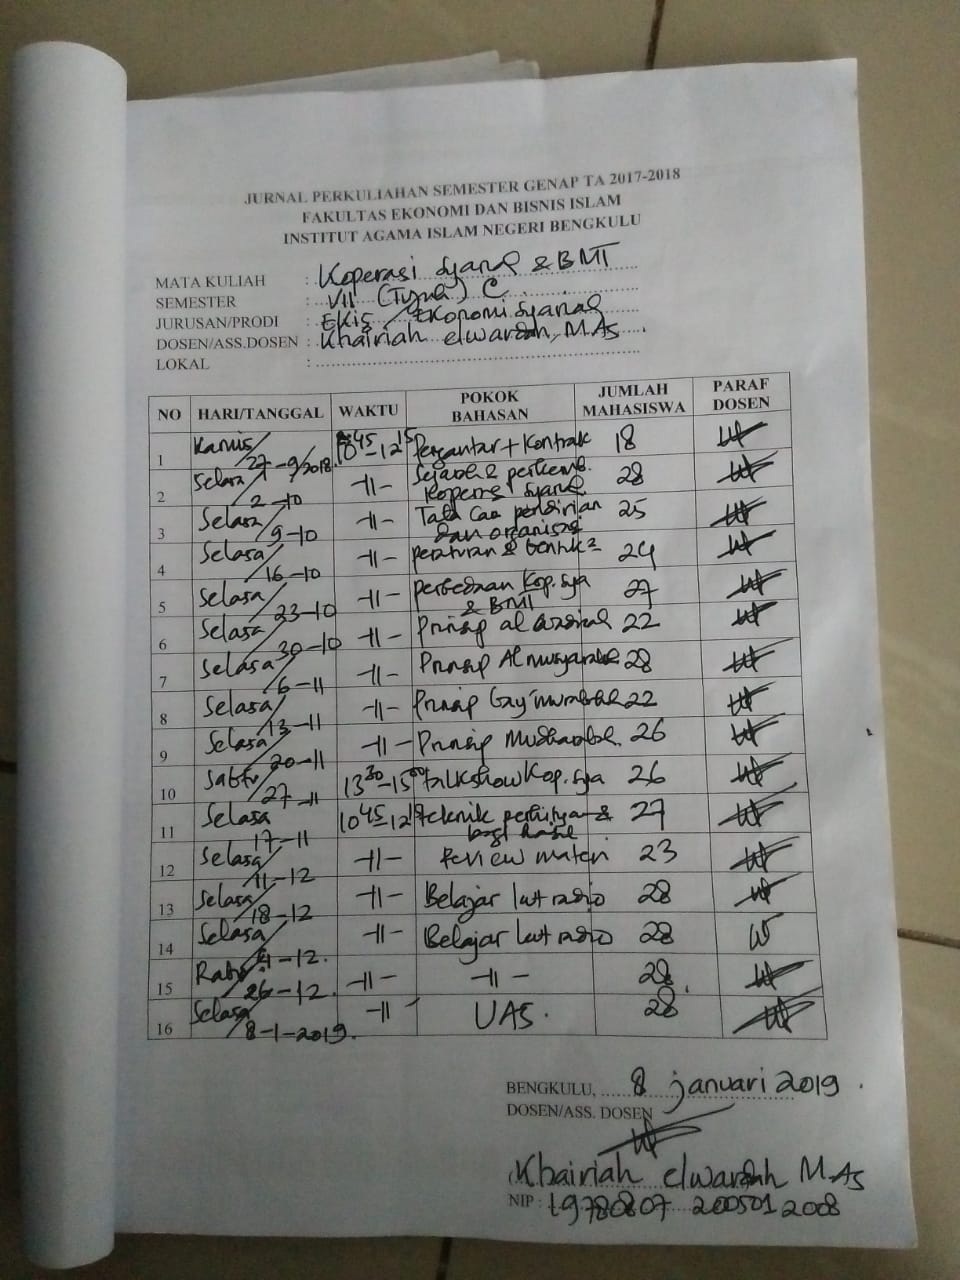 JURNAL PERKULIAHAN SEMESTER GENAP TA 2017-2018
FAKULTAS EKONOMI DAN BISNIS ISLAM
INSTITUT AGAMA ISLAM NEGERI BENGKULU
MATA KULIAH : Koperasi Syariah & BMT
SEMESTER : VII C
JURUSAN/PRODI : EKIS / Ekonomi Syariah
DOSEN/ASS.DOSEN : Khairiah elwardah, M.Ag
LOKAL :
NO HARI/TANGGAL WAKTU POKOK BAHASAN JUMLAH MAHASISWA PARAF DOSEN
1 Kamis/27-9/2018 10 45-12 15 Pengantar + Kontrak 18
2 Selasa/2-10 -11- Sejarah & perkemb. Koperasi Syariah 28
3 Selasa/9-10 -11- Tata Cara pendirian dan organisasi 25
4 Selasa/16-10 -11- peraturan & bentuk2 24
5 Selasa/23-10 -11- perbedaan Kop. Sya & BMT 27
6 Selasa/30-10 -11- Prinsip al 22
7 Selasa/6-11 -11- Prinsip Al musyarakah 28
8 Selasa/13-11 -11- Prinsip bay' murabahah 22
9 Selasa/20-11 -11- Prinsip Mudharabah. 26
10 Sabtu/27-11 13 30-15 00 talkshow Kop. Sya 26
11 Selasa/17-11 10 45-12 15 teknik & bagi hasil 27
12 Selasa/11-12 -11- Review materi 23
13 Selasa/18-12 -11- Belajar radio 28
14 Selasa -12. -11- Belajar radio 28
15 Rabu/26-12. -11- -11- 28
16 Selasa/8-1-2019. -11- UAS. 28
BENGKULU, 8 januari 2019.
DOSEN/ASS. DOSEN
Khairiah elwardah M.Ag
NIP : 19780807 200501 2008